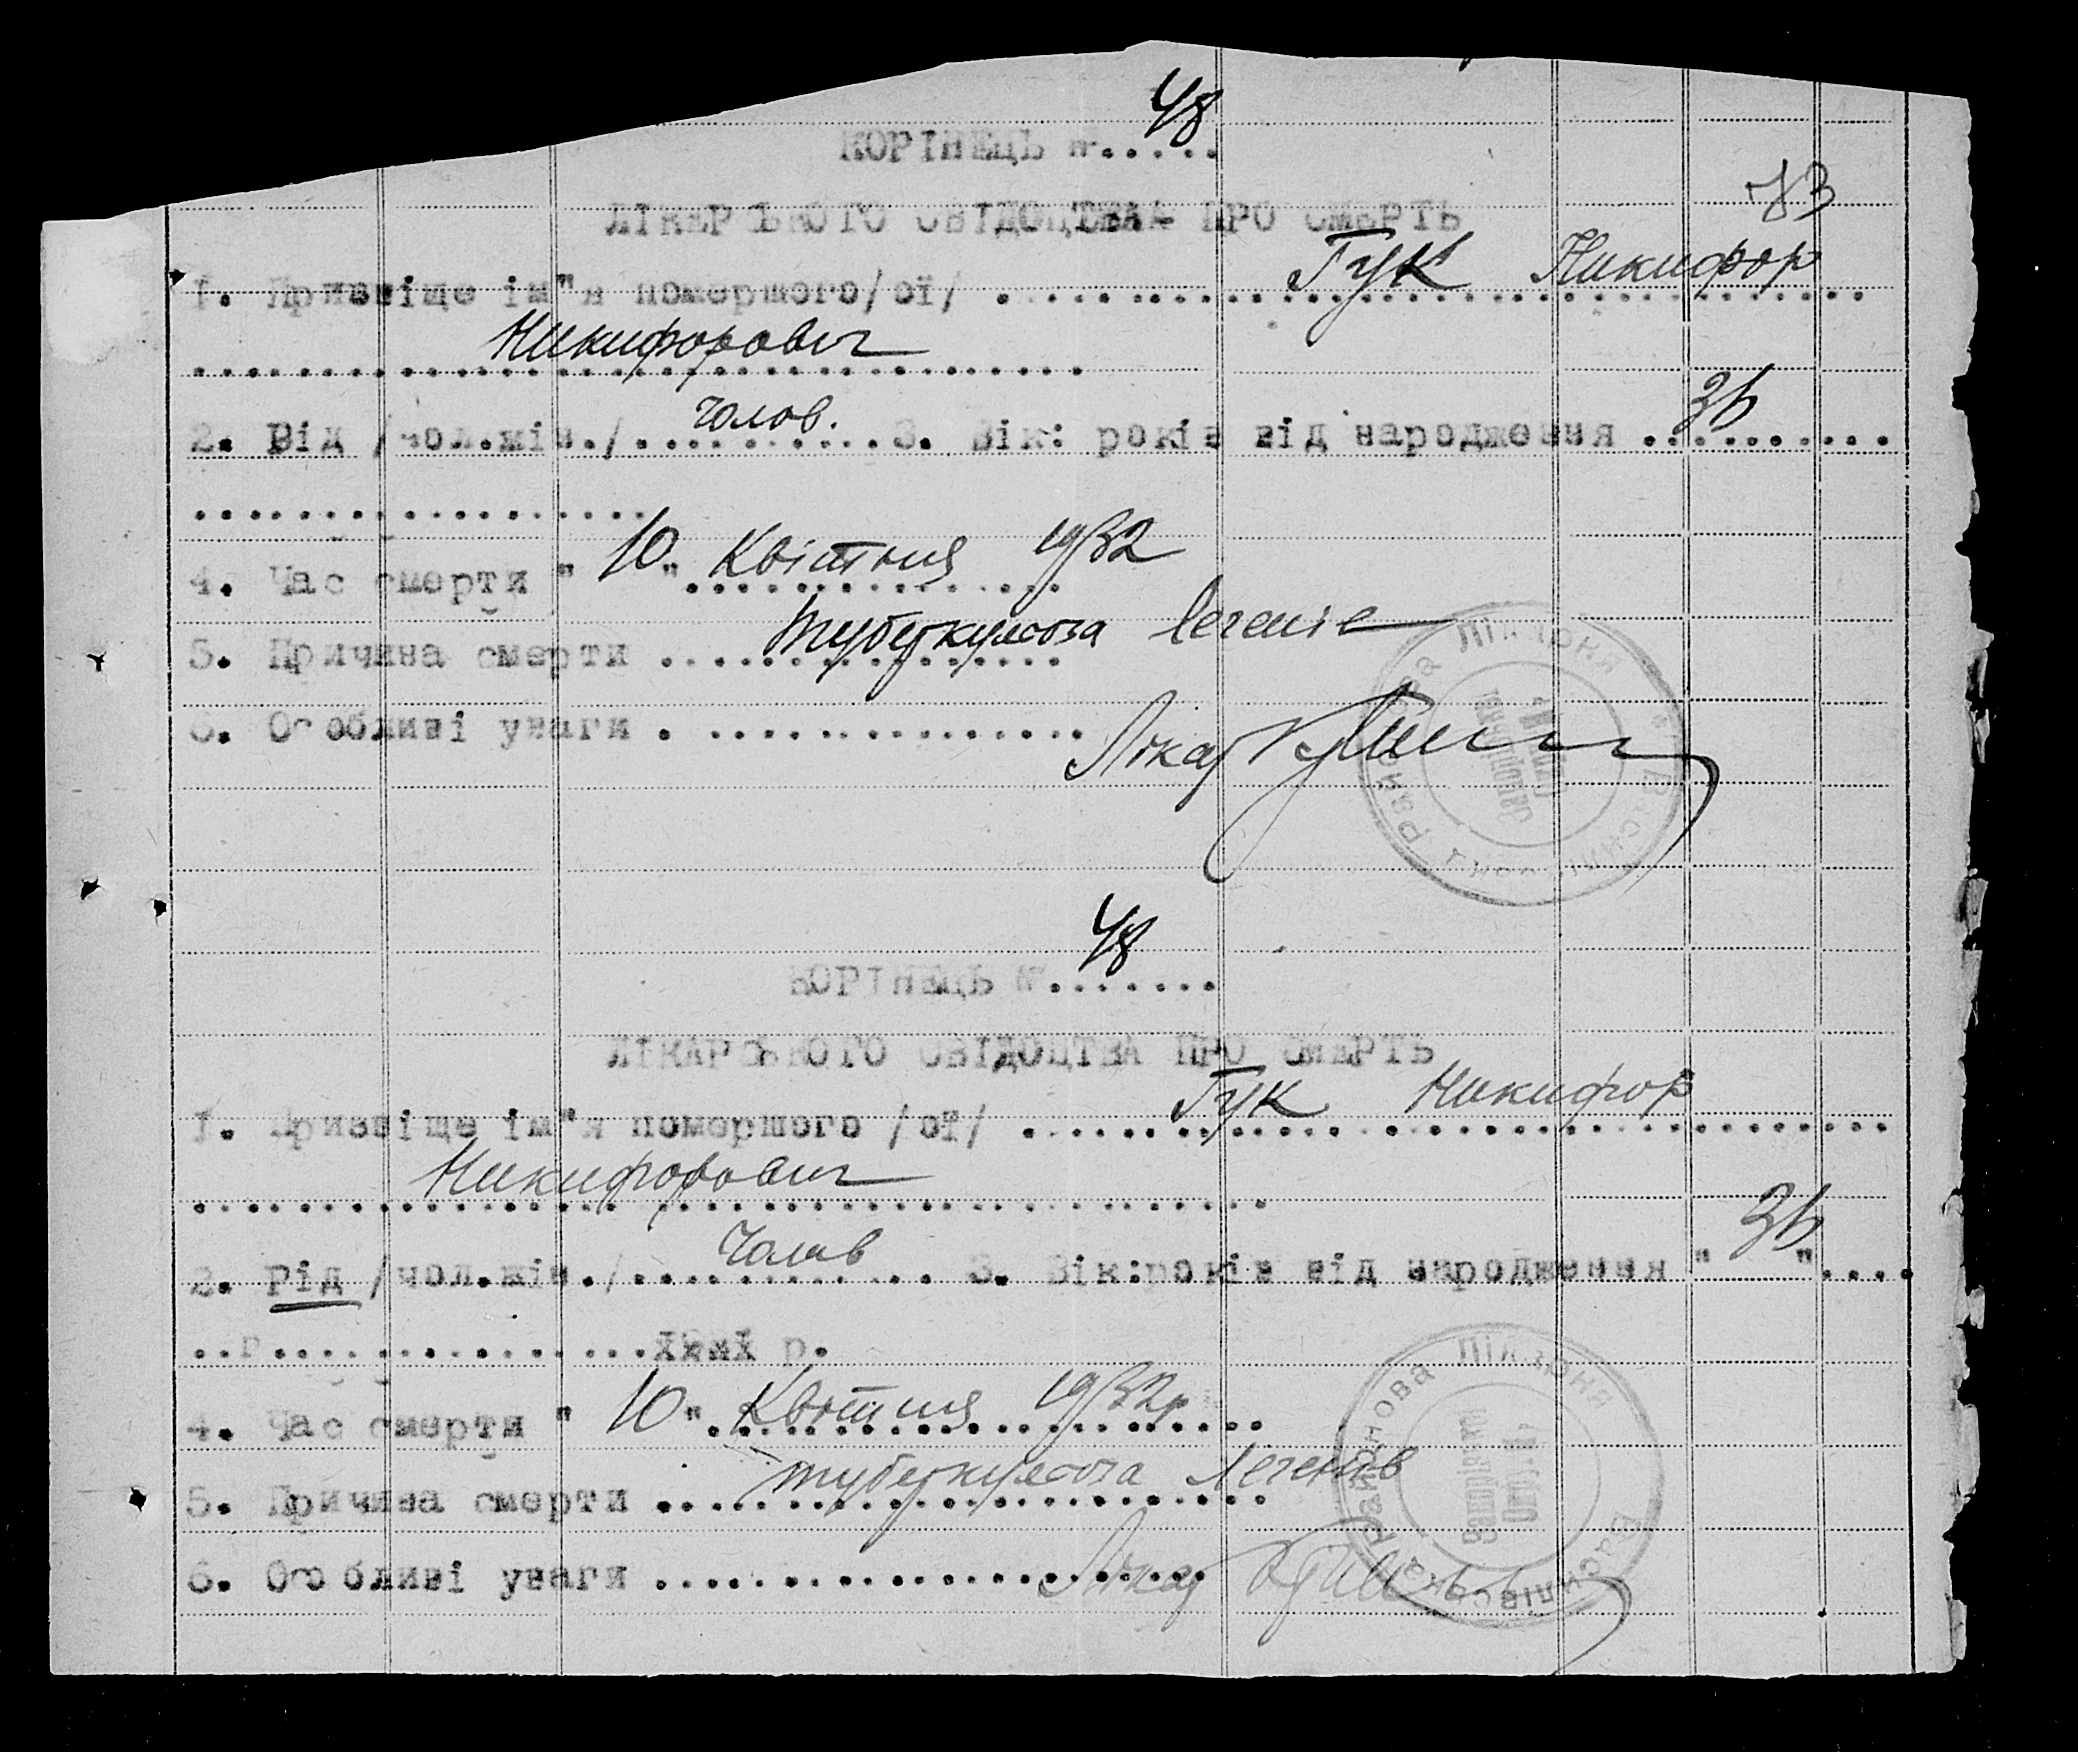 КОРІНЕЦЬ № ..... 48
ЛІКАРСЬКОГО СВІДОЦТВА ПРО СМЕРТЬ
73
1. Призвіще ім"я помершого/ої/ ..... Гук Никифор
Никифорович
2. Рід /чол.жін./..... чолов. 3. Вік: років від народження ..... 36
4. Час смерти " 10 " Квітня 1932
5. Причина смерти ..... туберкульоза легенів
6. Особливі уваги . .....
Лікар
Районова Лікарня
КОРІНЕЦЬ № ..... 48
ЛІКАРСЬКОГО СВІДОЦТВА ПРО СМЕРТЬ
1. Призвіще ім"я помершого /ої/ ..... Гук Никифор
Никифорович
2. Рід /чол.жін./..... Чолов 3. Вік:років від народження " 36 "....
р.
4. Час смерти " 10 " Квітня 1932р
5. Причина смерти ..... туберкульоза Легенів
6. Особливі уваги .....
Лікар
Районова Лікарня Василівська Запорізької Округи